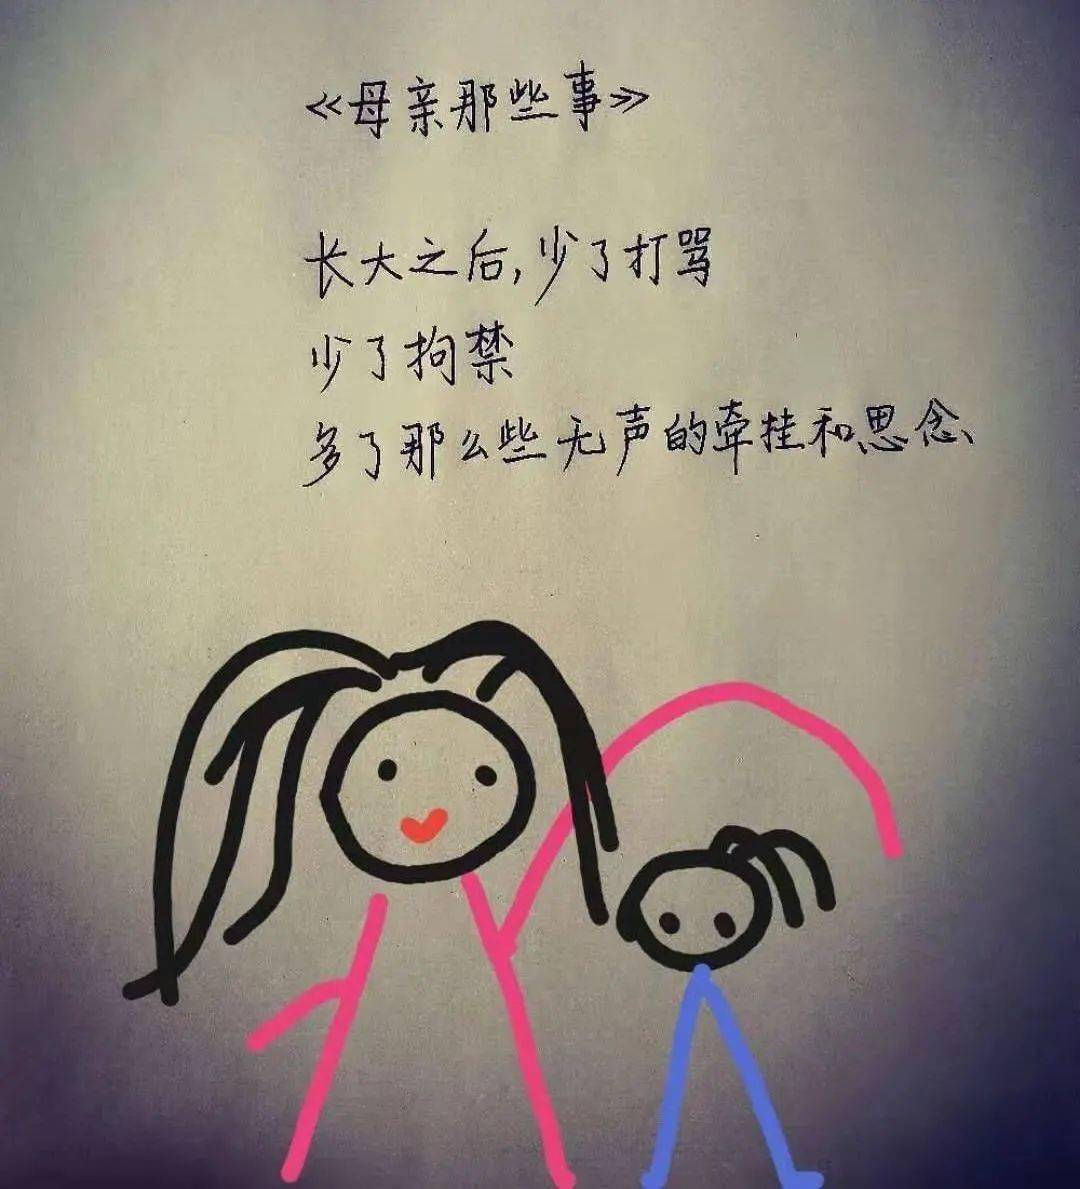 《母亲那些事》
长大之后,少了打骂
少了拘禁
多了那么些无声的牵挂和思念、